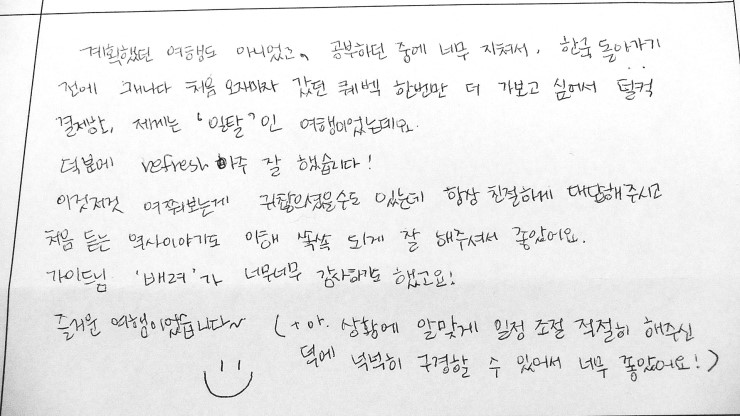 계획했던 여행도 아니었고, 공부하던 중에 너무 지쳐서, 한국 돌아가기
전에 캐나다 처음 오자마자 갔던 퀘벡 한번만 더 가보고 싶어서 덜컥
결제한, 제게는 '일탈'인 여행이었는데요.
덕분에 refresh 아주 잘 했습니다!
이것저것 여쭤보는게 귀찮으셨을수도 있는데 항상 친절하게 대답해주시고
처음 듣는 역사이야기도 이해 쏙쏙 되게 잘 해주셔서 좋았어요.
가이드님 '배려'가 너무너무 감사하기도 했고요!
즐거운 여행이었습니다~ (+아. 상황에 알맞게 일정 조절 적절히 해주신
덕에 넉넉히 구경할 수 있어서 너무 좋았어요!)